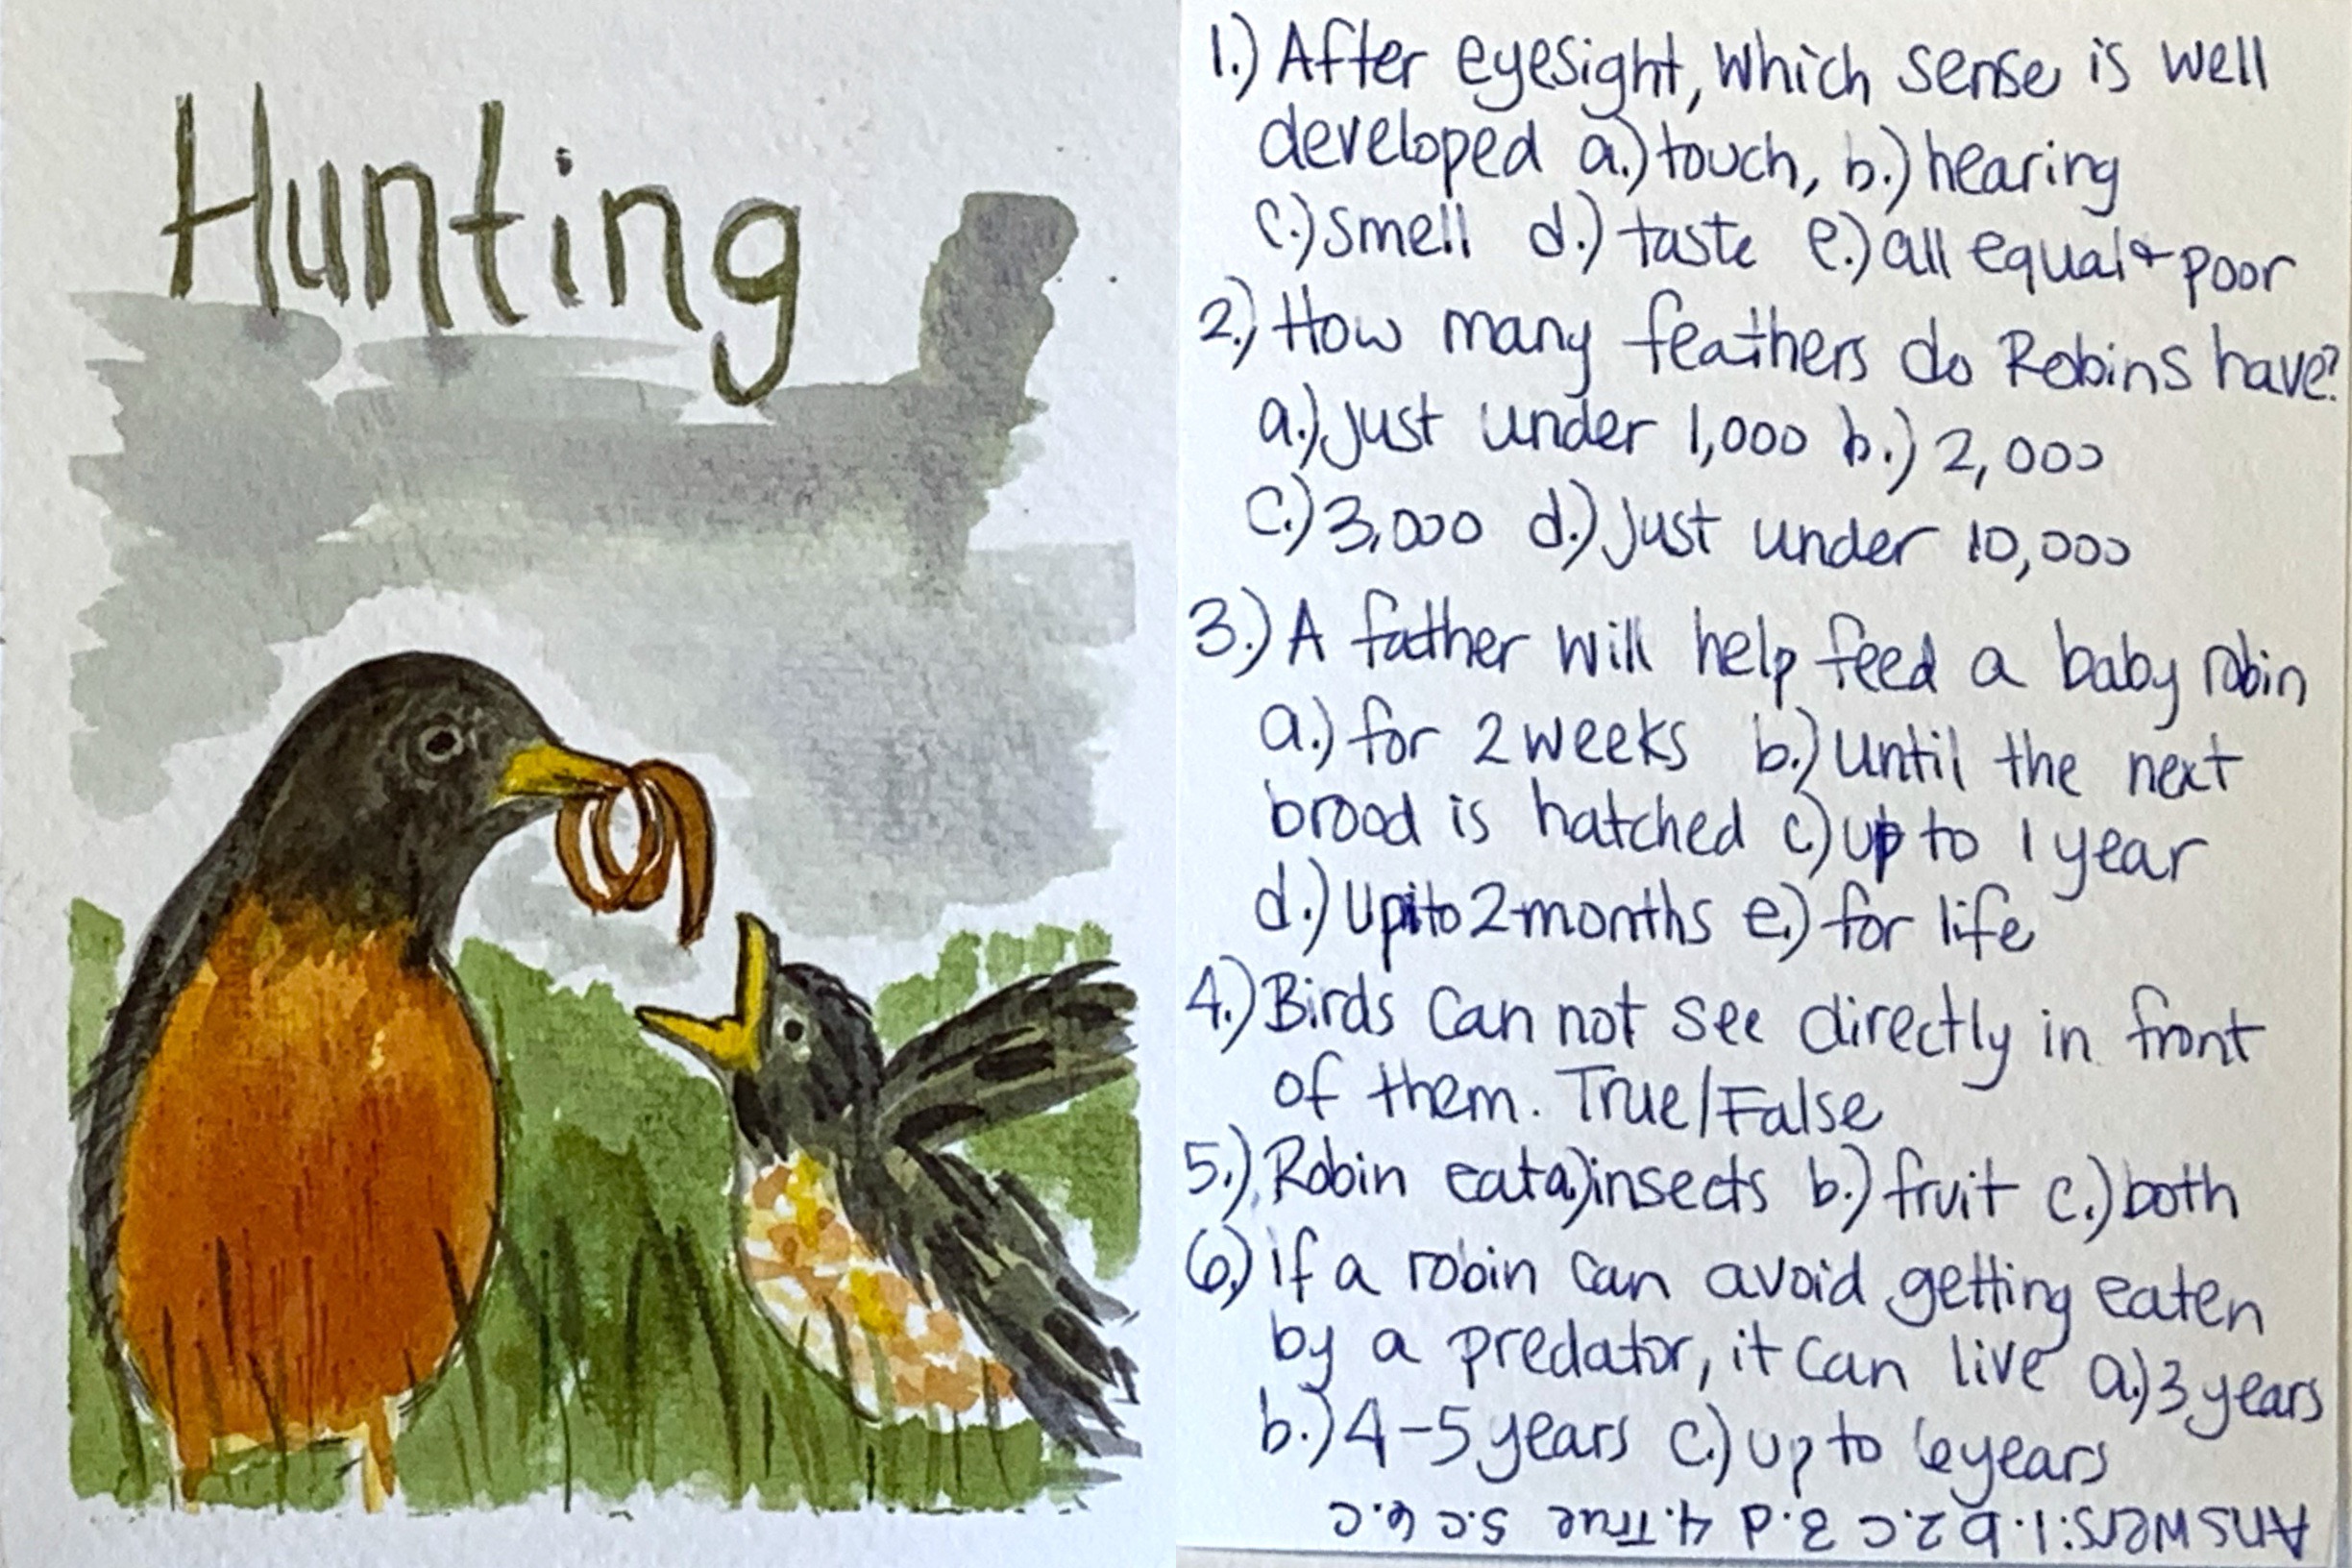 Hunting
1.) After eyesight, which sense is well
developed a.) touch, b.) hearing
c.) smell d.) taste e.) all equal & poor
2.) How many feathers do Robins have?
a.) just under 1,000 b.) 2,000
c.) 3,000 d.) just under 10,000
3.) A father will help feed a baby robin
a.) for 2 weeks b.) until the next
brood is hatched c.) up to 1 year
d.) up to 2 months e.) for life
4.) Birds can not see directly in front
of them. True/False
5.) Robin eat a.) insects b.) fruit c.) both
6.) if a robin can avoid getting eaten
by a predator, it can live a.) 3 years
b.) 4-5 years c.) up to 6 years
Answers: 1. b 2. c 3. d 4. True 5. c 6. c